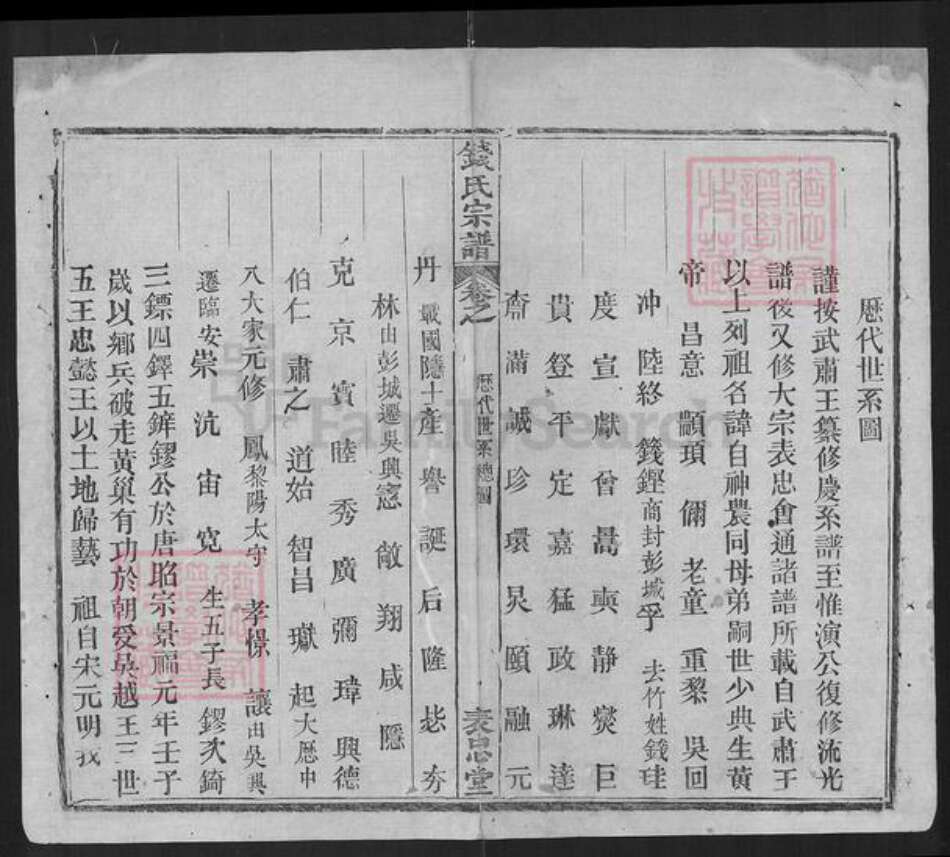 歷代世系圖
謹按武肅王纂修慶系譜至惟演公復修流光
譜後又修大宗表忠會通諸譜所載自武肅王
以上列祖名諱自神農同母弟嗣世少典生黃
帝 昌意 顓頊 偁 老童 重黎 吳回
冲 陸終 籛鏗商封彭城孚 去竹姓錢硅
度 宣 獻 曾 暠 奭 靜 爕 巨
貴 登 平 定 嘉 猛 政 琳 達
齋 滿 誠 珍 環 炅 頤 融 元
錢氏宗譜 卷之 歷代世系總圖 表忠堂
丹 戰國隱士產 譽 誕 后 隆 毖 夯
林由彭城遷吳興憲 敞 翔 咸 隱
克 京 賓 睦 秀 廣 彌 瑋 興 德
伯仁 肅之 道始 智昌 瓛 起大歷中
八大家元修 鳳黎陽太守 孝憬 讓由吳興
遷臨安崇 沆 宙 寬 生五子長 鏐次錡
三鏢四鐸五鏵鏐公於唐昭宗景福元年壬子
歲以鄉兵破走黃巢有功於朝受吳越王三世
五王忠懿王以土地歸藝 祖自宋元明我
FamilySearch